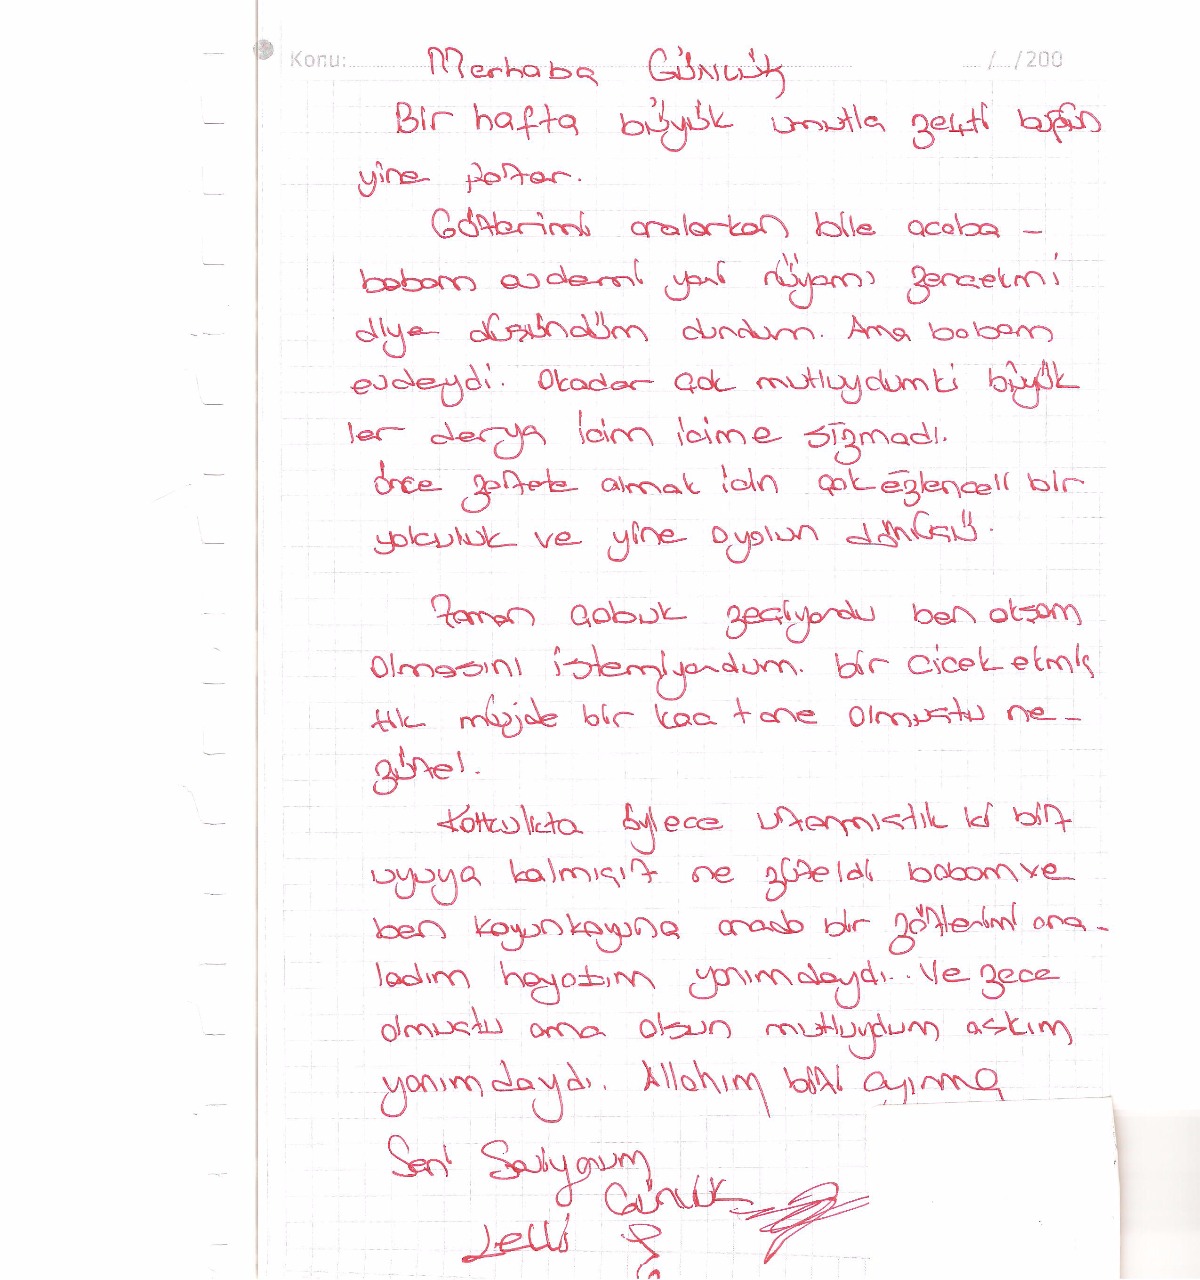 Konu: Merhaba Günlük / /200
Bir hafta büyük umutla geçti bugün
yine pazar.
Gözlerimi aralarken bile acaba -
babam evdemi yani rüyamı gercekmi
diye düşündüm durdum. Ama babam
evdeydi. Okadar çok mutluydumki büyük
ler derya icim icime sığmadı.
önce gazete almak icin çok eğlenceli bir
yolculuk ve yine oyolun dönüşü.
Zaman çabuk geçiyordu ben akşam
olmasını istemiyordum. bir cicek ekmiş
tik müjde bir kaç tane olmustu ne -
güzel.
Koltukta öylece uzanmıstık ki biz
uyuya kalmışız ne güzeldi babam ve
ben koyunkoyuna arada bir gözlerimi ara -
ladım hayatım yanımdaydı.. Ve gece
olmustu ama olsun mutluydum askım
yanımdaydı. Allahım bizi ayırma
Seni Seviyorum
Günlük